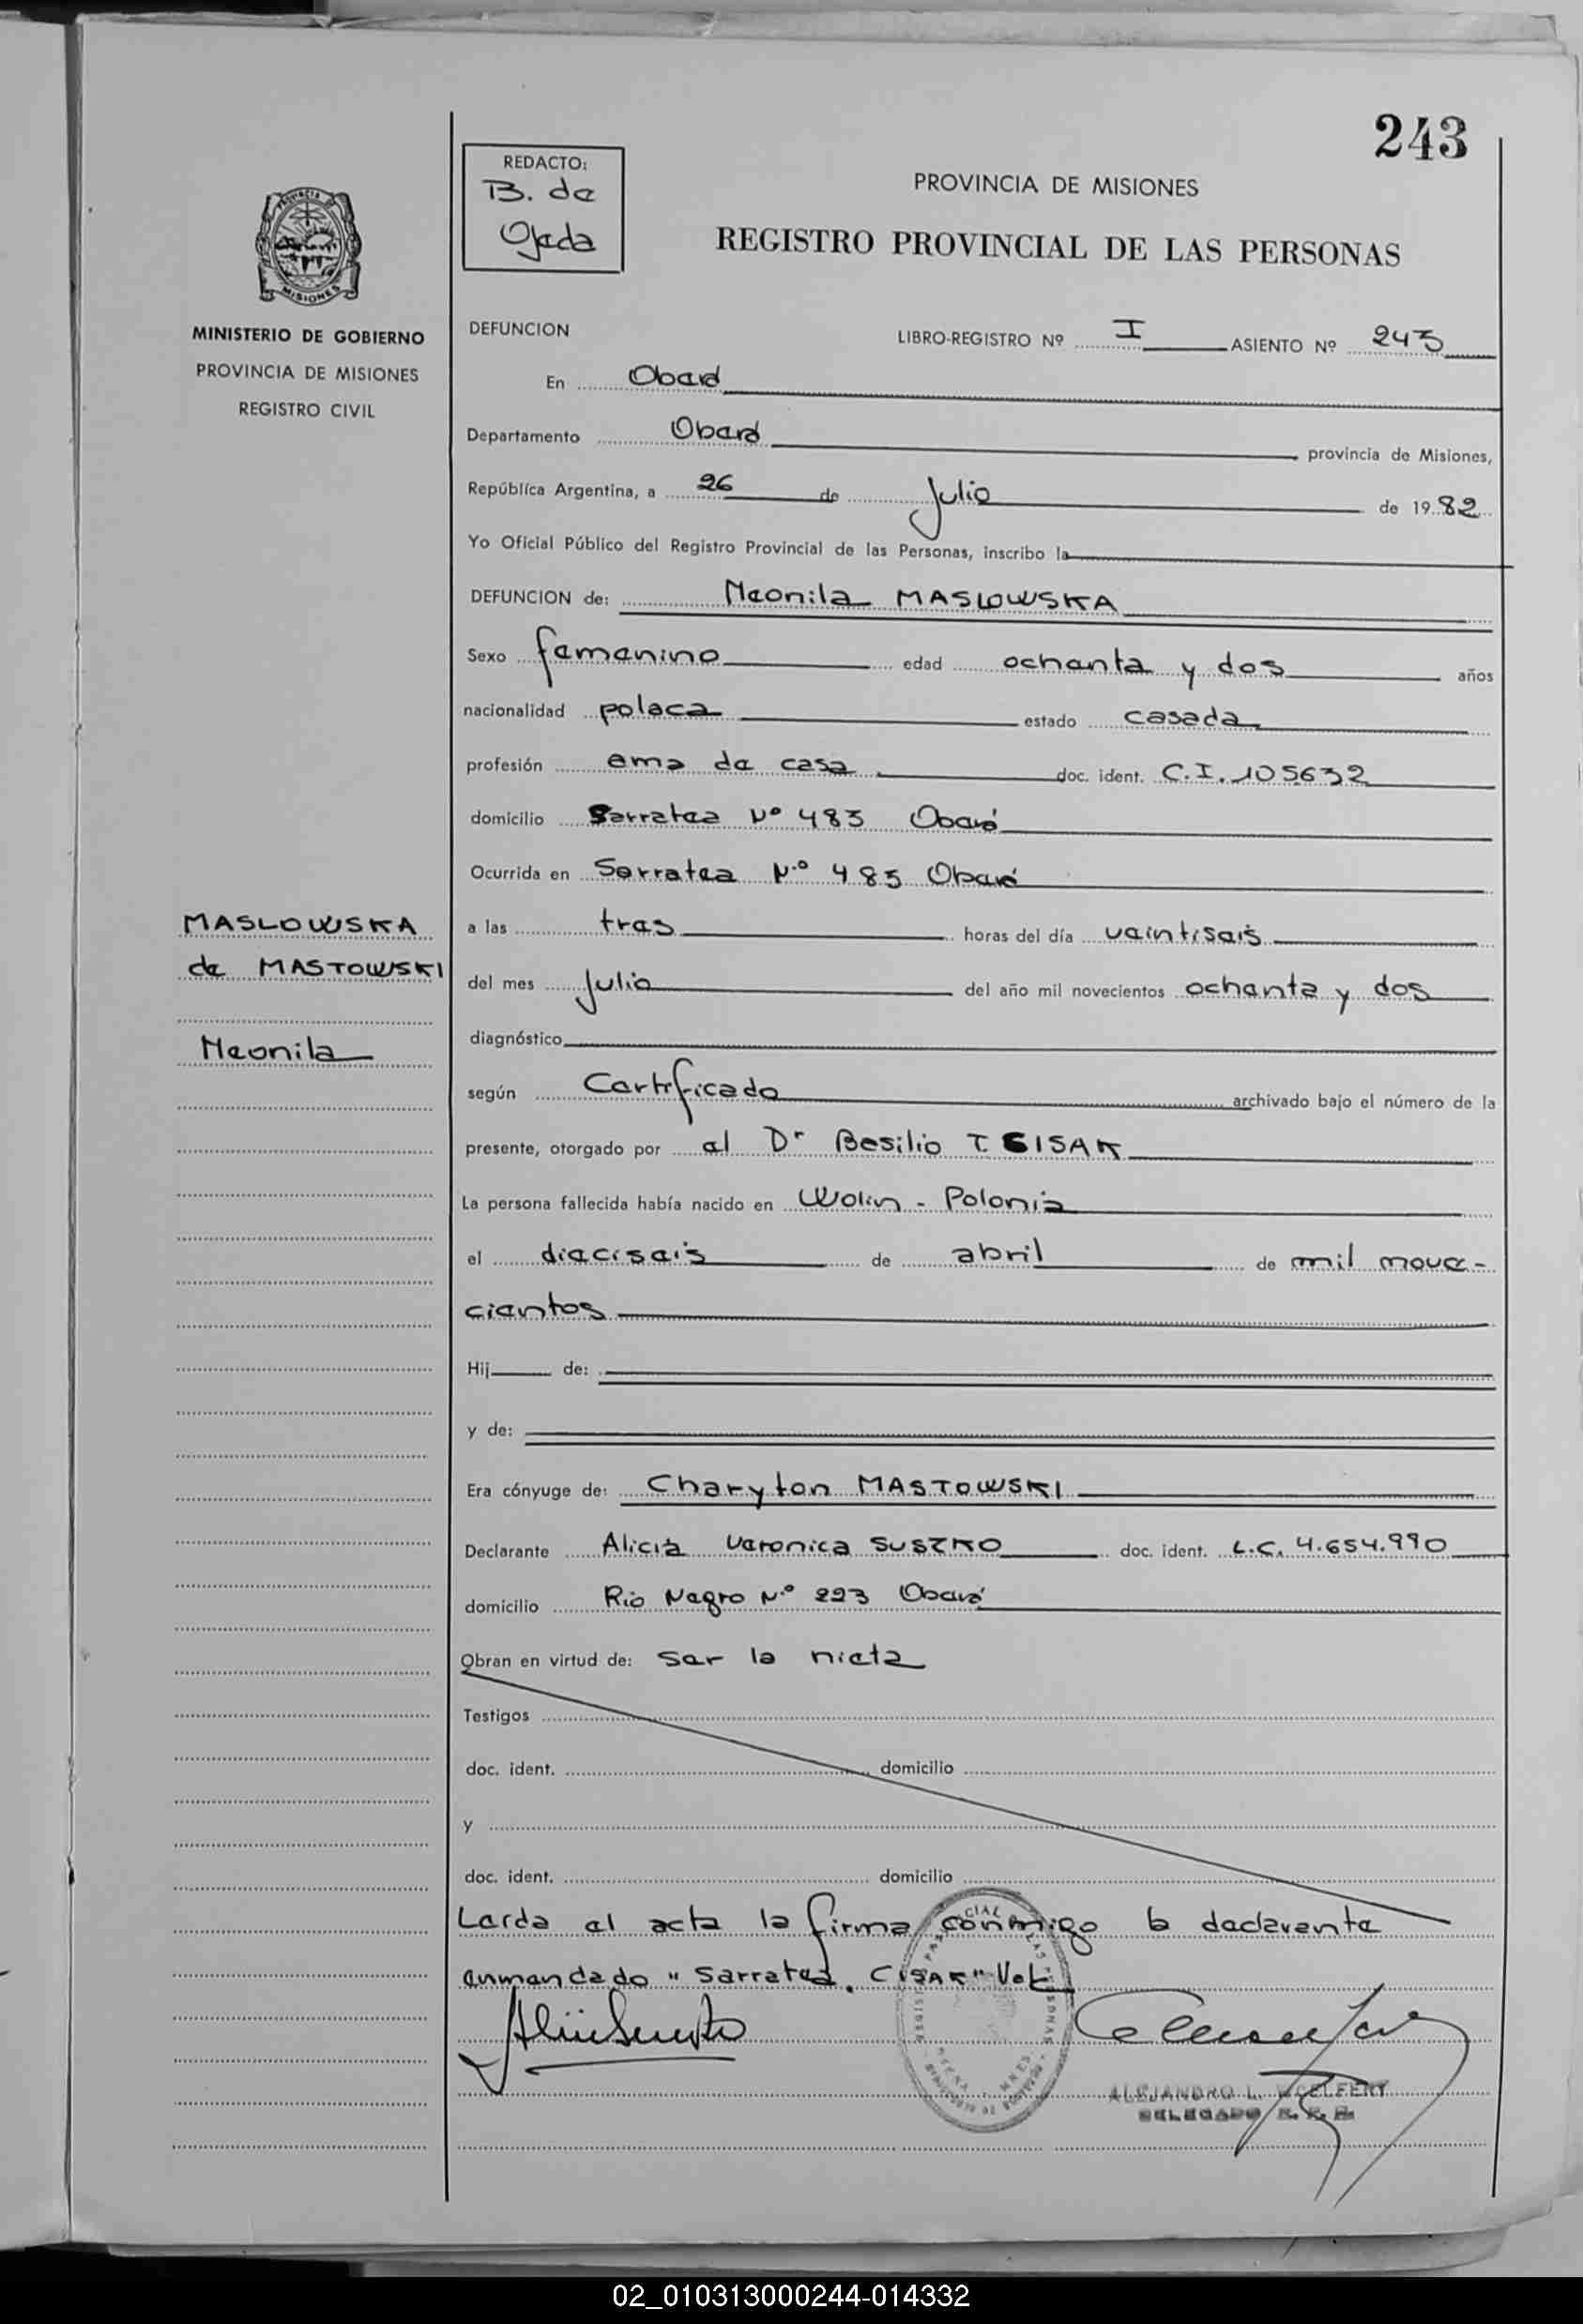 243
REDACTO:
B. de
Ojeda
PROVINCIA DE MISIONES
REGISTRO PROVINCIAL DE LAS PERSONAS
MINISTERIO DE GOBIERNO
PROVINCIA DE MISIONES
REGISTRO CIVIL
DEFUNCION LIBRO-REGISTRO Nº I ASIENTO Nº 243
En Oberá
Departamento Oberá provincia de Misiones,
República Argentina, a 26 de Julio de 1982
Yo Oficial Público del Registro Provincial de las Personas, inscribo la
DEFUNCION de: Neonila MASLOWSKA
Sexo femenino edad ochenta y dos años
nacionalidad polaca estado casada
profesión ama de casa doc. ident. C.I. 105632
domicilio Sarratea Nº 483 Oberá
Ocurrida en Sarratea Nº 483 Oberá
a las tres horas del día veintiseis
del mes Julio del año mil novecientos ochenta y dos
MASLOWSKA
de MASTOWSKI
Neonila
diagnóstico
según Certificado archivado bajo el número de la
presente, otorgado por el Dr Basilio T. CISAK
La persona fallecida había nacido en Wolin - Polonia
el dieciseis de abril de mil nove-
cientos
Hij de:
y de:
Era cónyuge de: Charyton MASTOWSKI
Declarante Alicia Veronica SUSZKO doc. ident. L.C. 4.654.990
domicilio Rio Negro Nº 223 Oberá
Obran en virtud de: Ser la nieta
Testigos
doc. ident. domicilio
y
doc. ident. domicilio
Leida el acta la firma conmigo la declarante
enmendado "Sarratea. CISAK" Vale
ALEJANDRO L. WOELFERT
DELEGADO R. P. P.
02_010313000244-014332